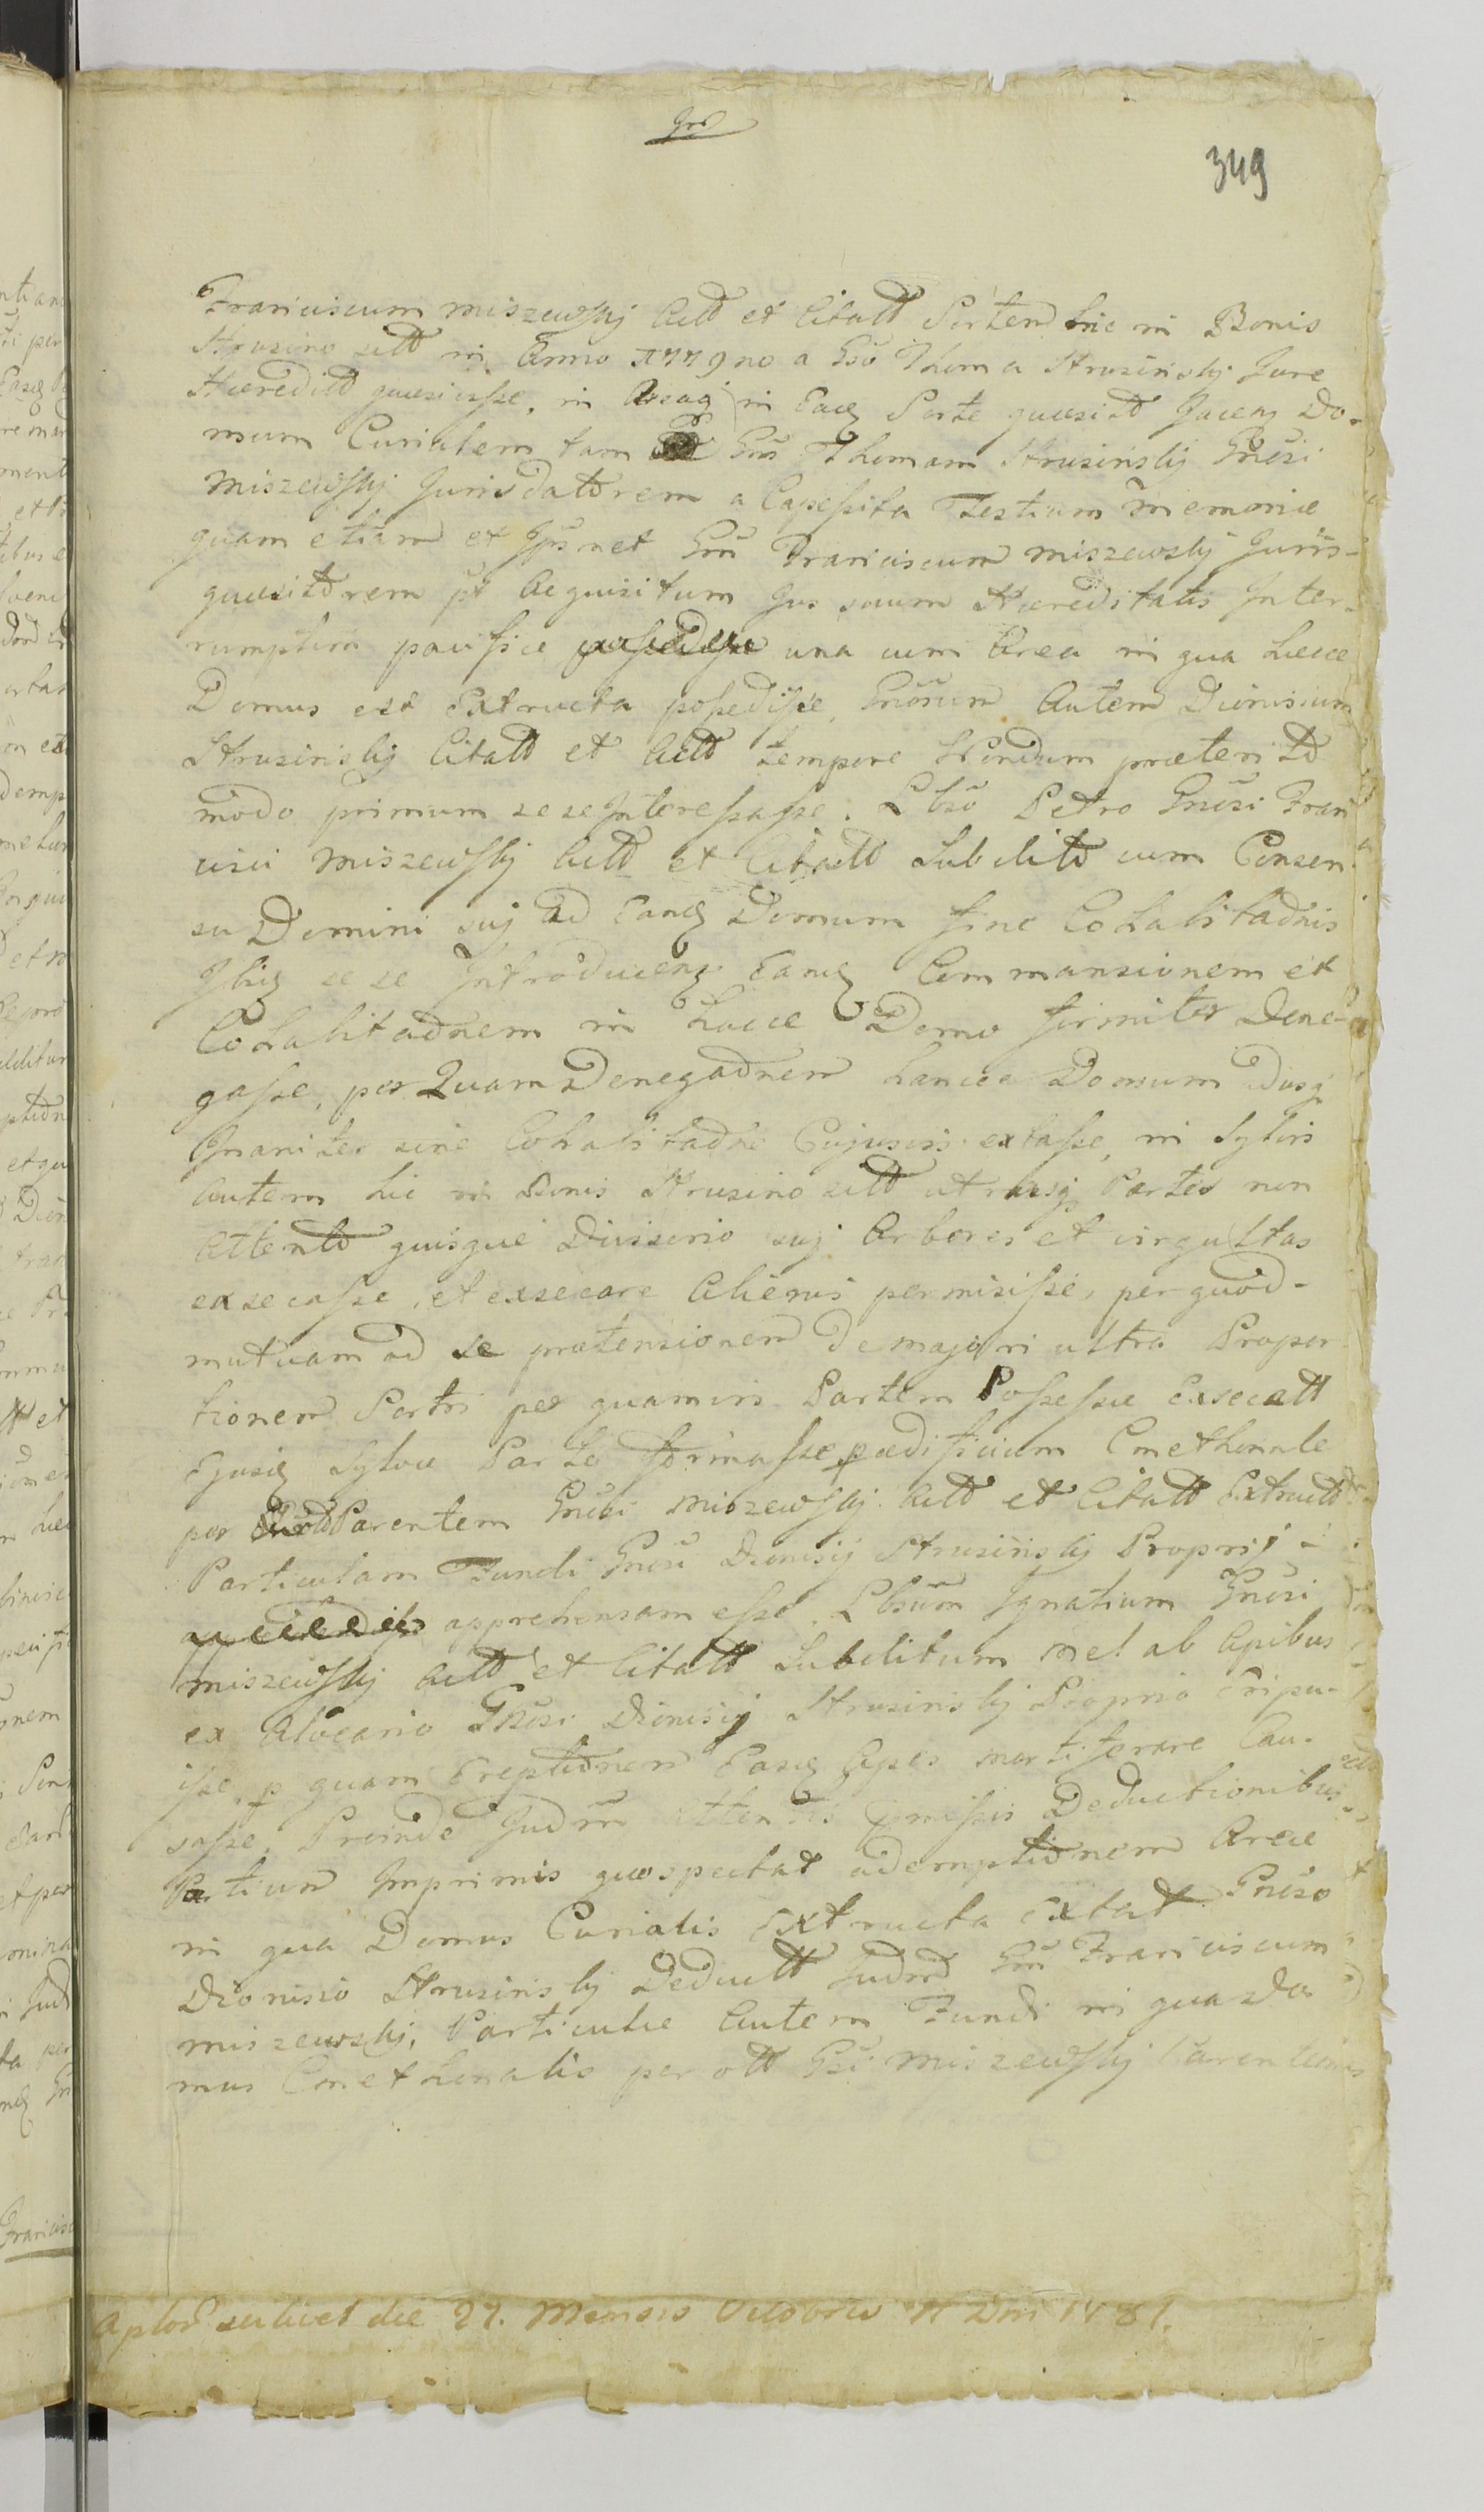 349
Franciscum Miszewskj Actt et Citatt Sortem hic in Bonis
Strusino sitt in Anno 1779no a Gso Thoma Strusinskj Jure
Hæreditt quæsivisse, in in Eadq Sorte quæsitt Jacenq Do-
mum Curialem tam Gnm Thomam Strusinskj Gnosi
Miszewskj Jurisdattorem a Capessita Testium memoria
quam etiam et Ipsnet Gnm Franciscum Miszewskj Juris-
quæsittorem pt Acquisitum Jus suum Hæreditatis Inter-
rumptim pacifice una cum Area in qua hæcce
Domus est Extructa possedisse, Gnosum Autem Dionisium
Strusinskj Citatt et Actt tempore Nondum præteritt
modo primum sese Interessasse. Lbso Petro Gnosi Fran
cisci Miszewskj Actt et Citatt Subditt cum Consen-
su Domini suj ad Eandq Domum fine Cohabitaonis
Ibiq se se Introducenq Eandq Commansionem et
Cohabitaonem in hacce Domo firmiter Dene-
gasse, per Quam Denegaonem hancce Domum
Inaniter sine Cohabitaone Cujusvis extasse, in Sylvis
autem hic in Bonis Strusino sitt utrasq Partes non
Attentt quisque Divisorio suj Arbores et virgultas
exsecasse, et exsecare Alienis permisisse, per quod-
mutuam ad se prætensionem De majori ultra Propor
tionem Sortis per quamvis Partem Possessæ Exsecatt
Ejusdq Sylvæ Parte formasse, p ædificium Cmethonale
per Parentem Gnosi Miszewskj Actt et Citatt Extructt
Particulam Fundi Gnosi Dionisij Strusinskj Proprij
apprehensam esse. Lbsum Ignatium Gnosi
Miszewskj Actt et Citatt Subditum mel ab Apibus
ex Alveario Gnosi Dionisij Strusinskj Proprio Eripu-
isse, p quam Ereptionem Easdq Apes mortiferare Cau-
sasse. Proinde Judm Attentis pmissis Deductionibus
Partium Imprimis quo spectat ademptionem Areæ
in qua Domus Curialis Extructa Extat Gnoso
Dionisio Strusinskj Deductt Judm Gnm Franciscum
Miszewskj, Particulæ Autem Fundi in qua Do
mus Cmethonalis per ott Gsi Miszewskj Parentem
scilicet die 27. Mensis Octobris A Dni 1781.